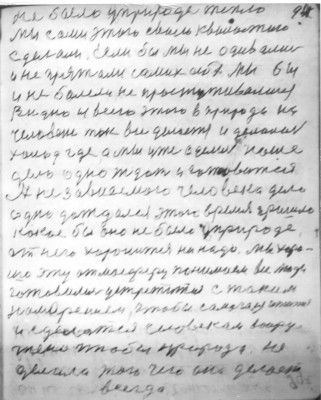 не было у природе тепло 94
мы сами этого своим
сделали. Если бы мы не одевали
и не прятали самих себя мы бы
и не болели не простуживались
Видно и всего этого в природе на
человека так все делается и делалось
холод где а мы уже сделали наше
дело одно ждать и готовится
А независимого человека дело
одно дождался этого время пришло
какое бы оно не было у природе,
от него хоронится не надо. Мы хоро-
шо эту атмосферу понимаем все люди
готовились встретится с таким
намерением, чтобы самозащитится
и сделаться человеком воору
жено чтобы природа не
делала того чего она делает
всегда